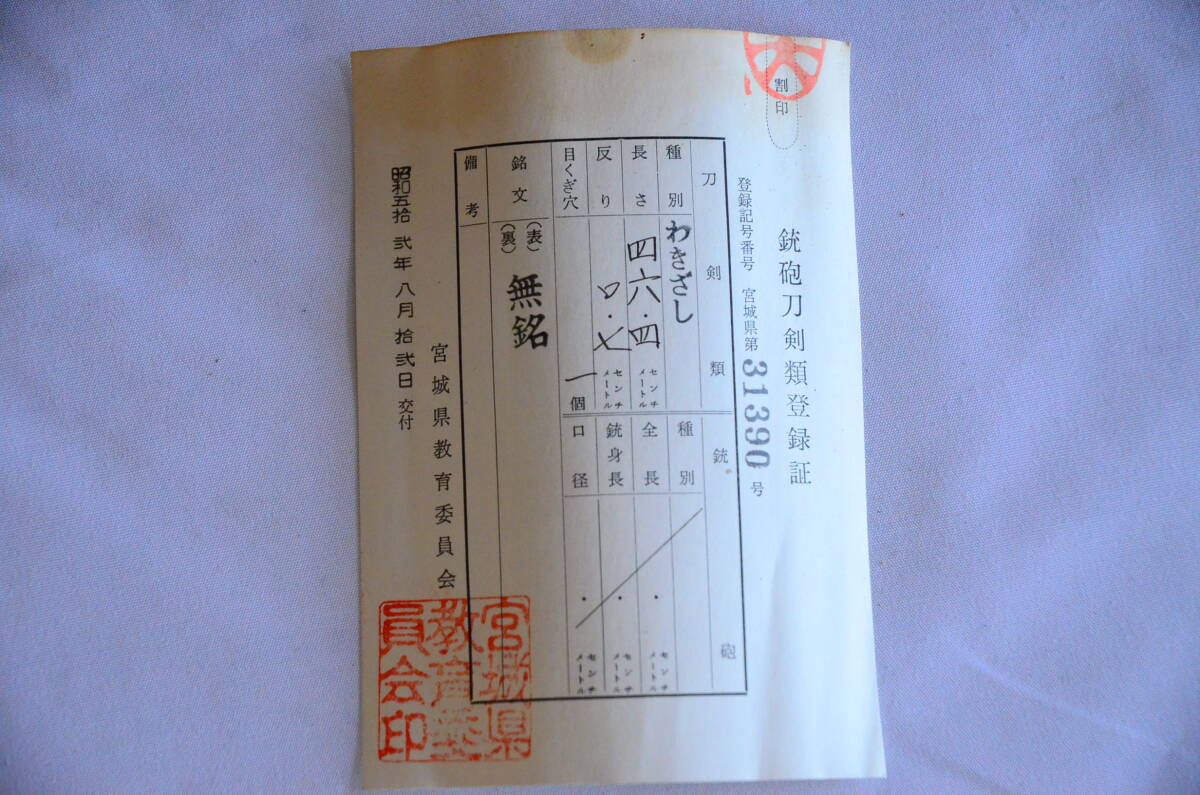 割印
銃砲刀剣類登録証
登録記号番号 宮城県第31390号
刀剣類
種別 わきざし
長さ 四六・四 センチメートル
反り 〇・七 センチメートル
目くぎ穴 一個
銘文 (表) (裏) 無銘
備考
銃砲
種別
全長 ・ センチメートル
銃身長 ・ センチメートル
口径 ・ センチメートル
宮城県教育委員会
昭和五拾弐年八月拾弐日交付
宮城県
教育委
員会印